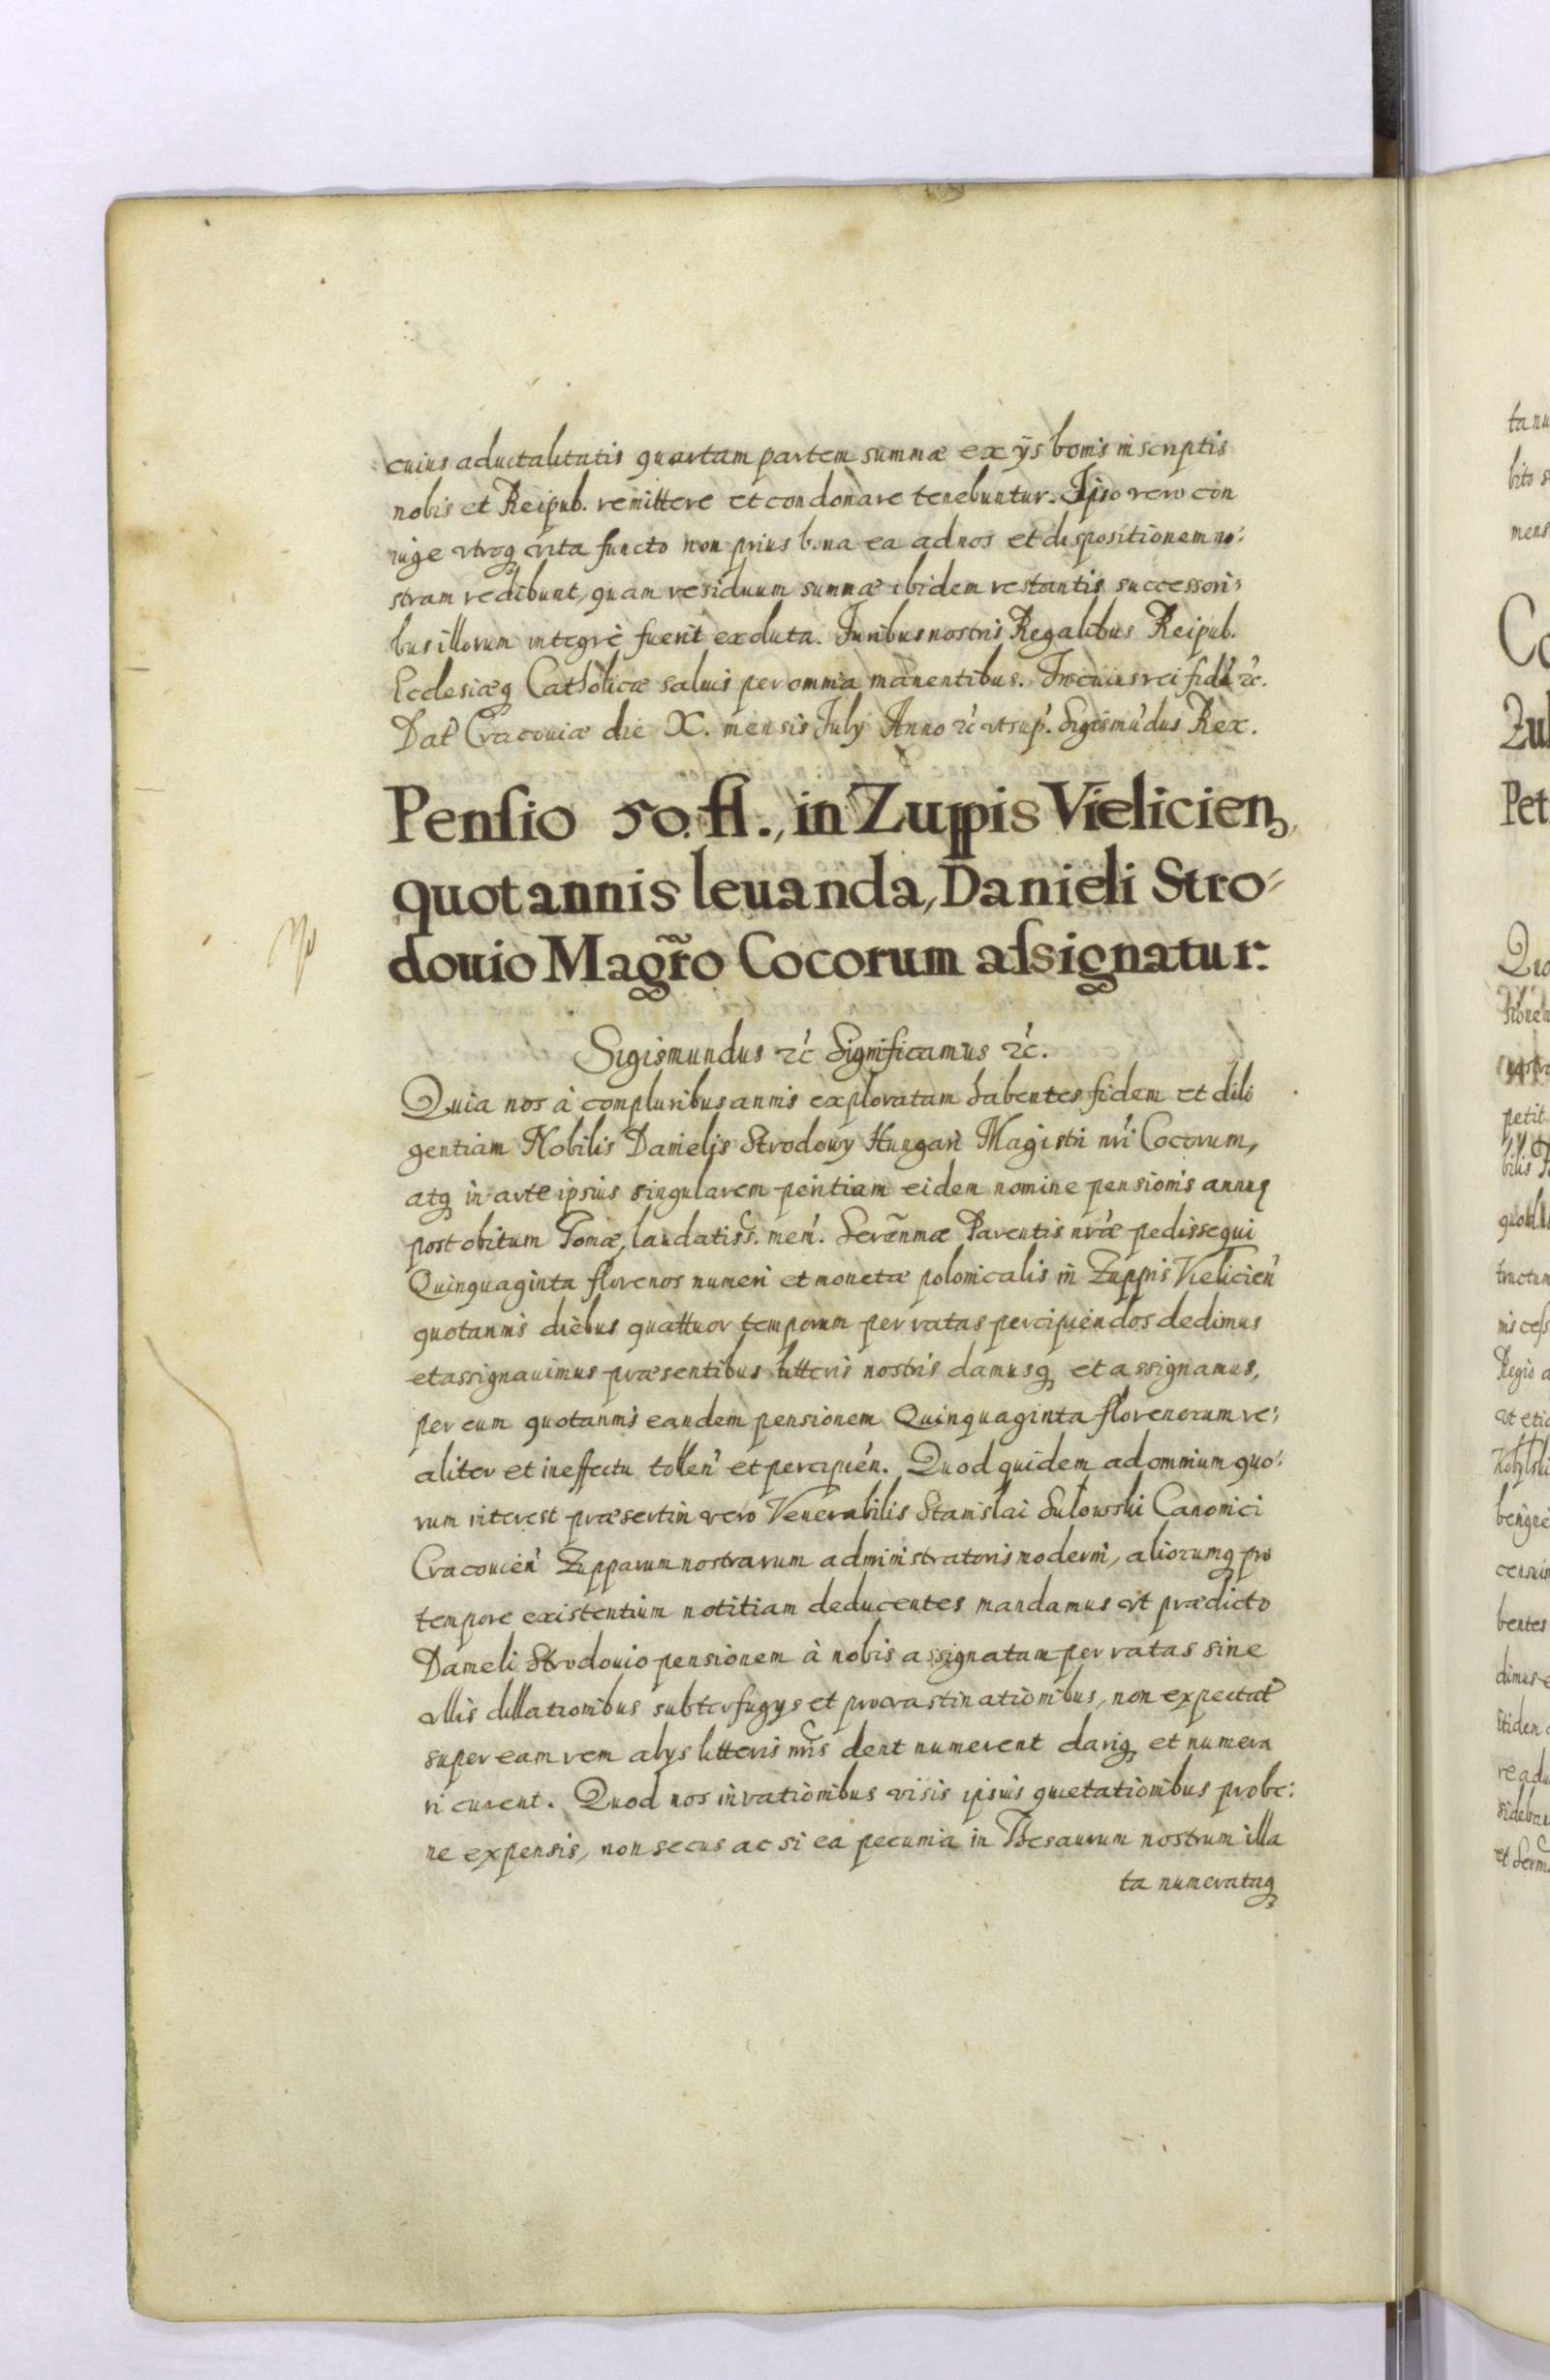 cuius aduitalitatis quartam partem summæ ex ijs bonis inscriptis
nobis et Reipub. remittere et condonare tenebuntur. Ipso vero con
iuge vtroq vita functo non prius bona ea ad nos et dispositionem no:
stram redibunt, quam residuum summæ ibidem restantis successori:
bus illorum integrè fuerit exoluta. Iuribus nostris Regalibus Reipub.
Ecclesiæq Catholicæ saluis per omnia manentibus. In cuius rei fidē ꝛc.
Dat Cracouiæ die X. mensis July Anno ꝛc vt sup. Sigismūdus Rex.
Pensio 50. fl., in Zuppis Vielicien,
quotannis leuanda, Danieli Stro-
douio Magr̃o Cocorum assignatur.
Sigismundus ꝛc Significamus ꝛc.
Quia nos à compluribus annis exploratam habentes fidem et dili
gentiam Nobilis Danielis Strodowy Hungari Magistri nr̃i Cocorum,
atq in arte ipsius singularem peritiam eidem nomine pensionis annuę
post obitum Tomæ, laudatiss. mem. Serēnmæ Parentis nr̃æ pedissequi
Quinquaginta florenos numeri et monetæ polonicalis in Zuppis Vielicien
quotannis diebus quattuor temporum per ratas percipiendos dedimus
et assignauimus præsentibus litteris nostris damusq et assignamus,
per eum quotannis eandem pensionem Quinquaginta florenorum re:
aliter et in effectu tollen et percipien. Quod quidem ad omnium quo:
rum interest præsertim vero Venerabilis Stanislai Sulowski Canonici
Cracouien Zupparum nostrarum administratoris moderni, aliorumq pro
tempore existentium notitiam deducentes mandamus vt prædicto
Danieli Strodouio pensionem à nobis assignatam per ratas sine
vllis dillationibus subterfugys et procrastinationibus, non expectat̃
super eam rem alys litteris nr̃is dent numerent dariq et numera
ri curent. Quod nos in rationibus visis ipsius quietationibus probe:
ne expensis, non secus ac si ea pecunia in Thesaurum nostrum illa
ta numerataq